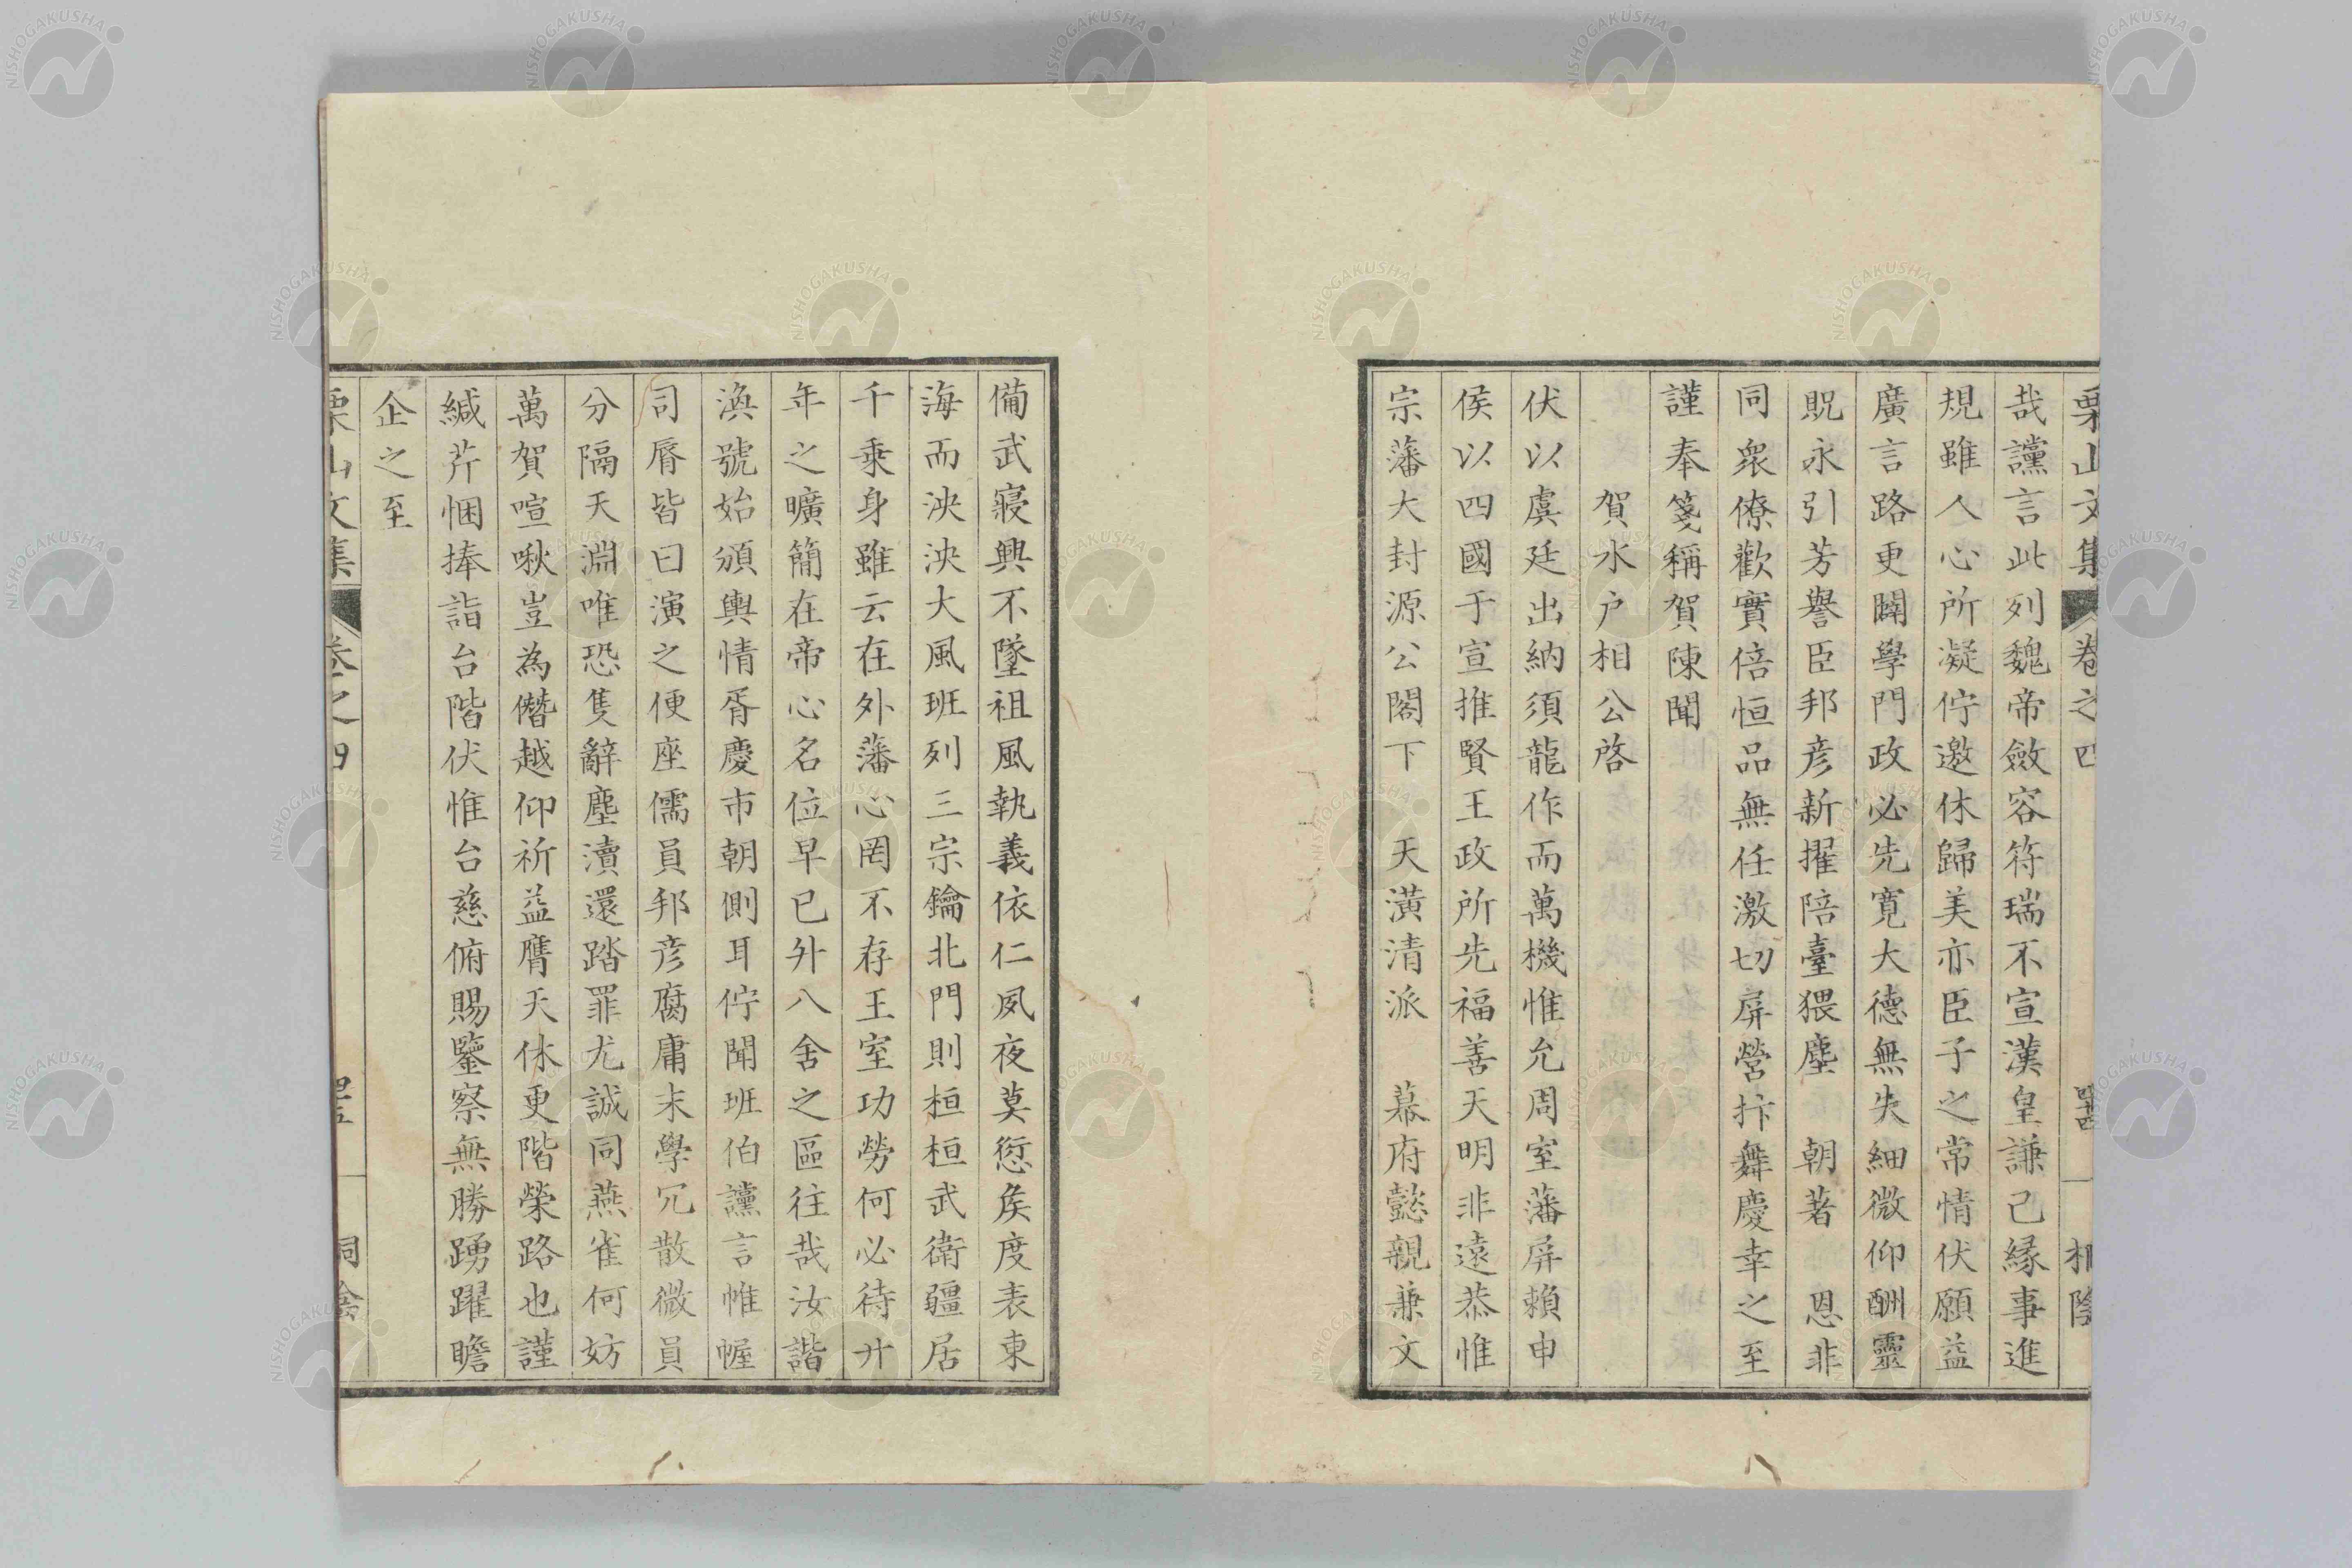 栗山文集 卷之四 桐陰
哉讜言此列魏帝斂容符瑞不宣漢皇謙己縁事進
規雖人心所凝佇邀休歸美亦臣子之常情伏願益
廣言路更闢學門政必先寬大德無失細微仰酬靈
貺永引芳譽臣邦彦新擢陪臺猥塵 朝著 恩非
同衆僚歡實倍恒品無任激切屏營抃舞慶幸之至
謹奉箋稱賀陳聞
賀水户相公啓
伏以虞廷出納須龍作而萬機惟允周室藩屏賴申
侯以四國于宣推賢王政所先福善天明非遠恭惟
宗藩大封源公閣下 天潢清派 幕府懿親兼文
備武寢興不墜祖風執義依仁夙夜莫愆矦度表東
海而泱泱大風班列三宗鑰北門則桓桓武衛疆居
千乘身雖云在外藩心罔不存王室功勞何必待廾
年之曠簡在帝心名位早已升八舍之區往哉汝諧
渙號始頒輿情胥慶市朝側耳佇聞班伯讜言帷幄
司脣皆曰演之便座儒員邦彦腐庸末學冗散微員
分隔天淵唯恐隻辭塵瀆還踏罪尤誠同燕雀何妨
萬賀喧啾豈為僭越仰祈益膺天休更階榮路也謹
緘芹悃捧詣台階伏惟台慈俯賜鑒察無勝踴躍瞻
企之至
栗山文集 卷之四 桐陰
NISHOGAKUSHA